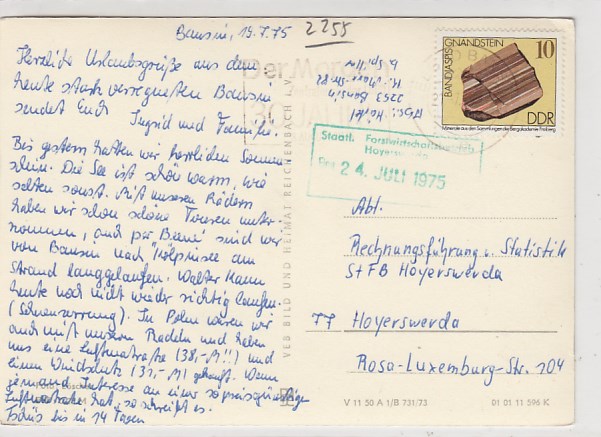 Bansin, 19.7.75
2255
Herzliche Urlaubsgrüße aus dem
heute stark verregneten Bansin
sendet Euch
Ingrid und Familie.
Bis gestern hatten wir herrlichen Sonnen-
schein. Die See ist schön warm, wie
selten sonst. Mit unseren Rädern
haben wir schon schöne Touren unter-
nommen, auch per Beine sind wir
von Bansin nach Kölpinsee am
Strand langgelaufen. Walter kann
heute noch nicht wieder richtig laufen.
(Sehnenzerrung). In Polen waren wir
auch mit unseren Radeln und haben
uns eine Luftmatratze (38,-M!!) und
einen Windschutz (31,-M) gekauft. Wenn
jemand Interesse an einer so preisgünstigen
Luftmatratze hat, so schreibt es.
Tschüs bis in 14 Tagen
2253 Bansin
VEB BILD UND HEIMAT REICHENBACH i. V.
BANDJASPIS
GNANDSTEIN
10
DDR
Minerale aus den Sammlungen der Bergakademie Freiberg
Staatl. Forstwirtschaftsbetrieb
Hoyerswerda
24. JULI 1975
Abt.
Rechnungsführung u. Statistik
StFB Hoyerswerda
77 Hoyerswerda
Rosa-Luxemburg-Str. 104
V 11 50 A 1/B 731/73
01 01 11 596 K